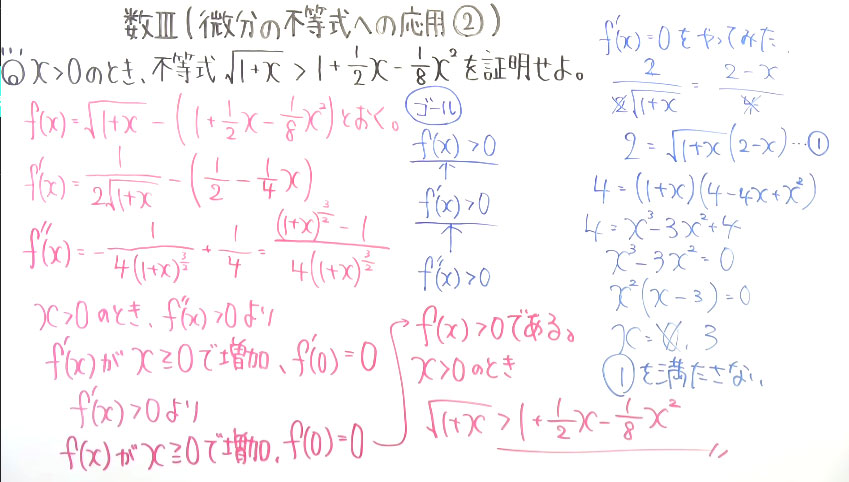 数Ⅲ(微分の不等式への応用②)
◎x>0のとき、不等式√(1+x) > 1+1/2x-1/8x²を証明せよ。
f(x)=√(1+x) -(1+1/2x-1/8x²)とおく。
f'(x)=1/(2√(1+x)) -(1/2-1/4x)
f''(x)=-1/(4(1+x)^(3/2)) + 1/4 = ((1+x)^(3/2) -1)/(4(1+x)^(3/2))
x>0のとき、f''(x)>0より
f'(x)がx≧0で増加、f'(0)=0
f'(x)>0より
f(x)がx≧0で増加、f(0)=0
ゴール
f(x)>0
↑
f'(x)>0
↑
f''(x)>0
f(x)>0である。
x>0のとき
√(1+x) > 1+1/2x-1/8x²
f'(x)=0をやってみた
2/(2√(1+x)) = (2-x)/4
2=√(1+x)(2-x)…①
4=(1+x)(4-4x+x²)
4=x³-3x²+4
x³-3x²=0
x²(x-3)=0
x=0, 3
①を満たさない、